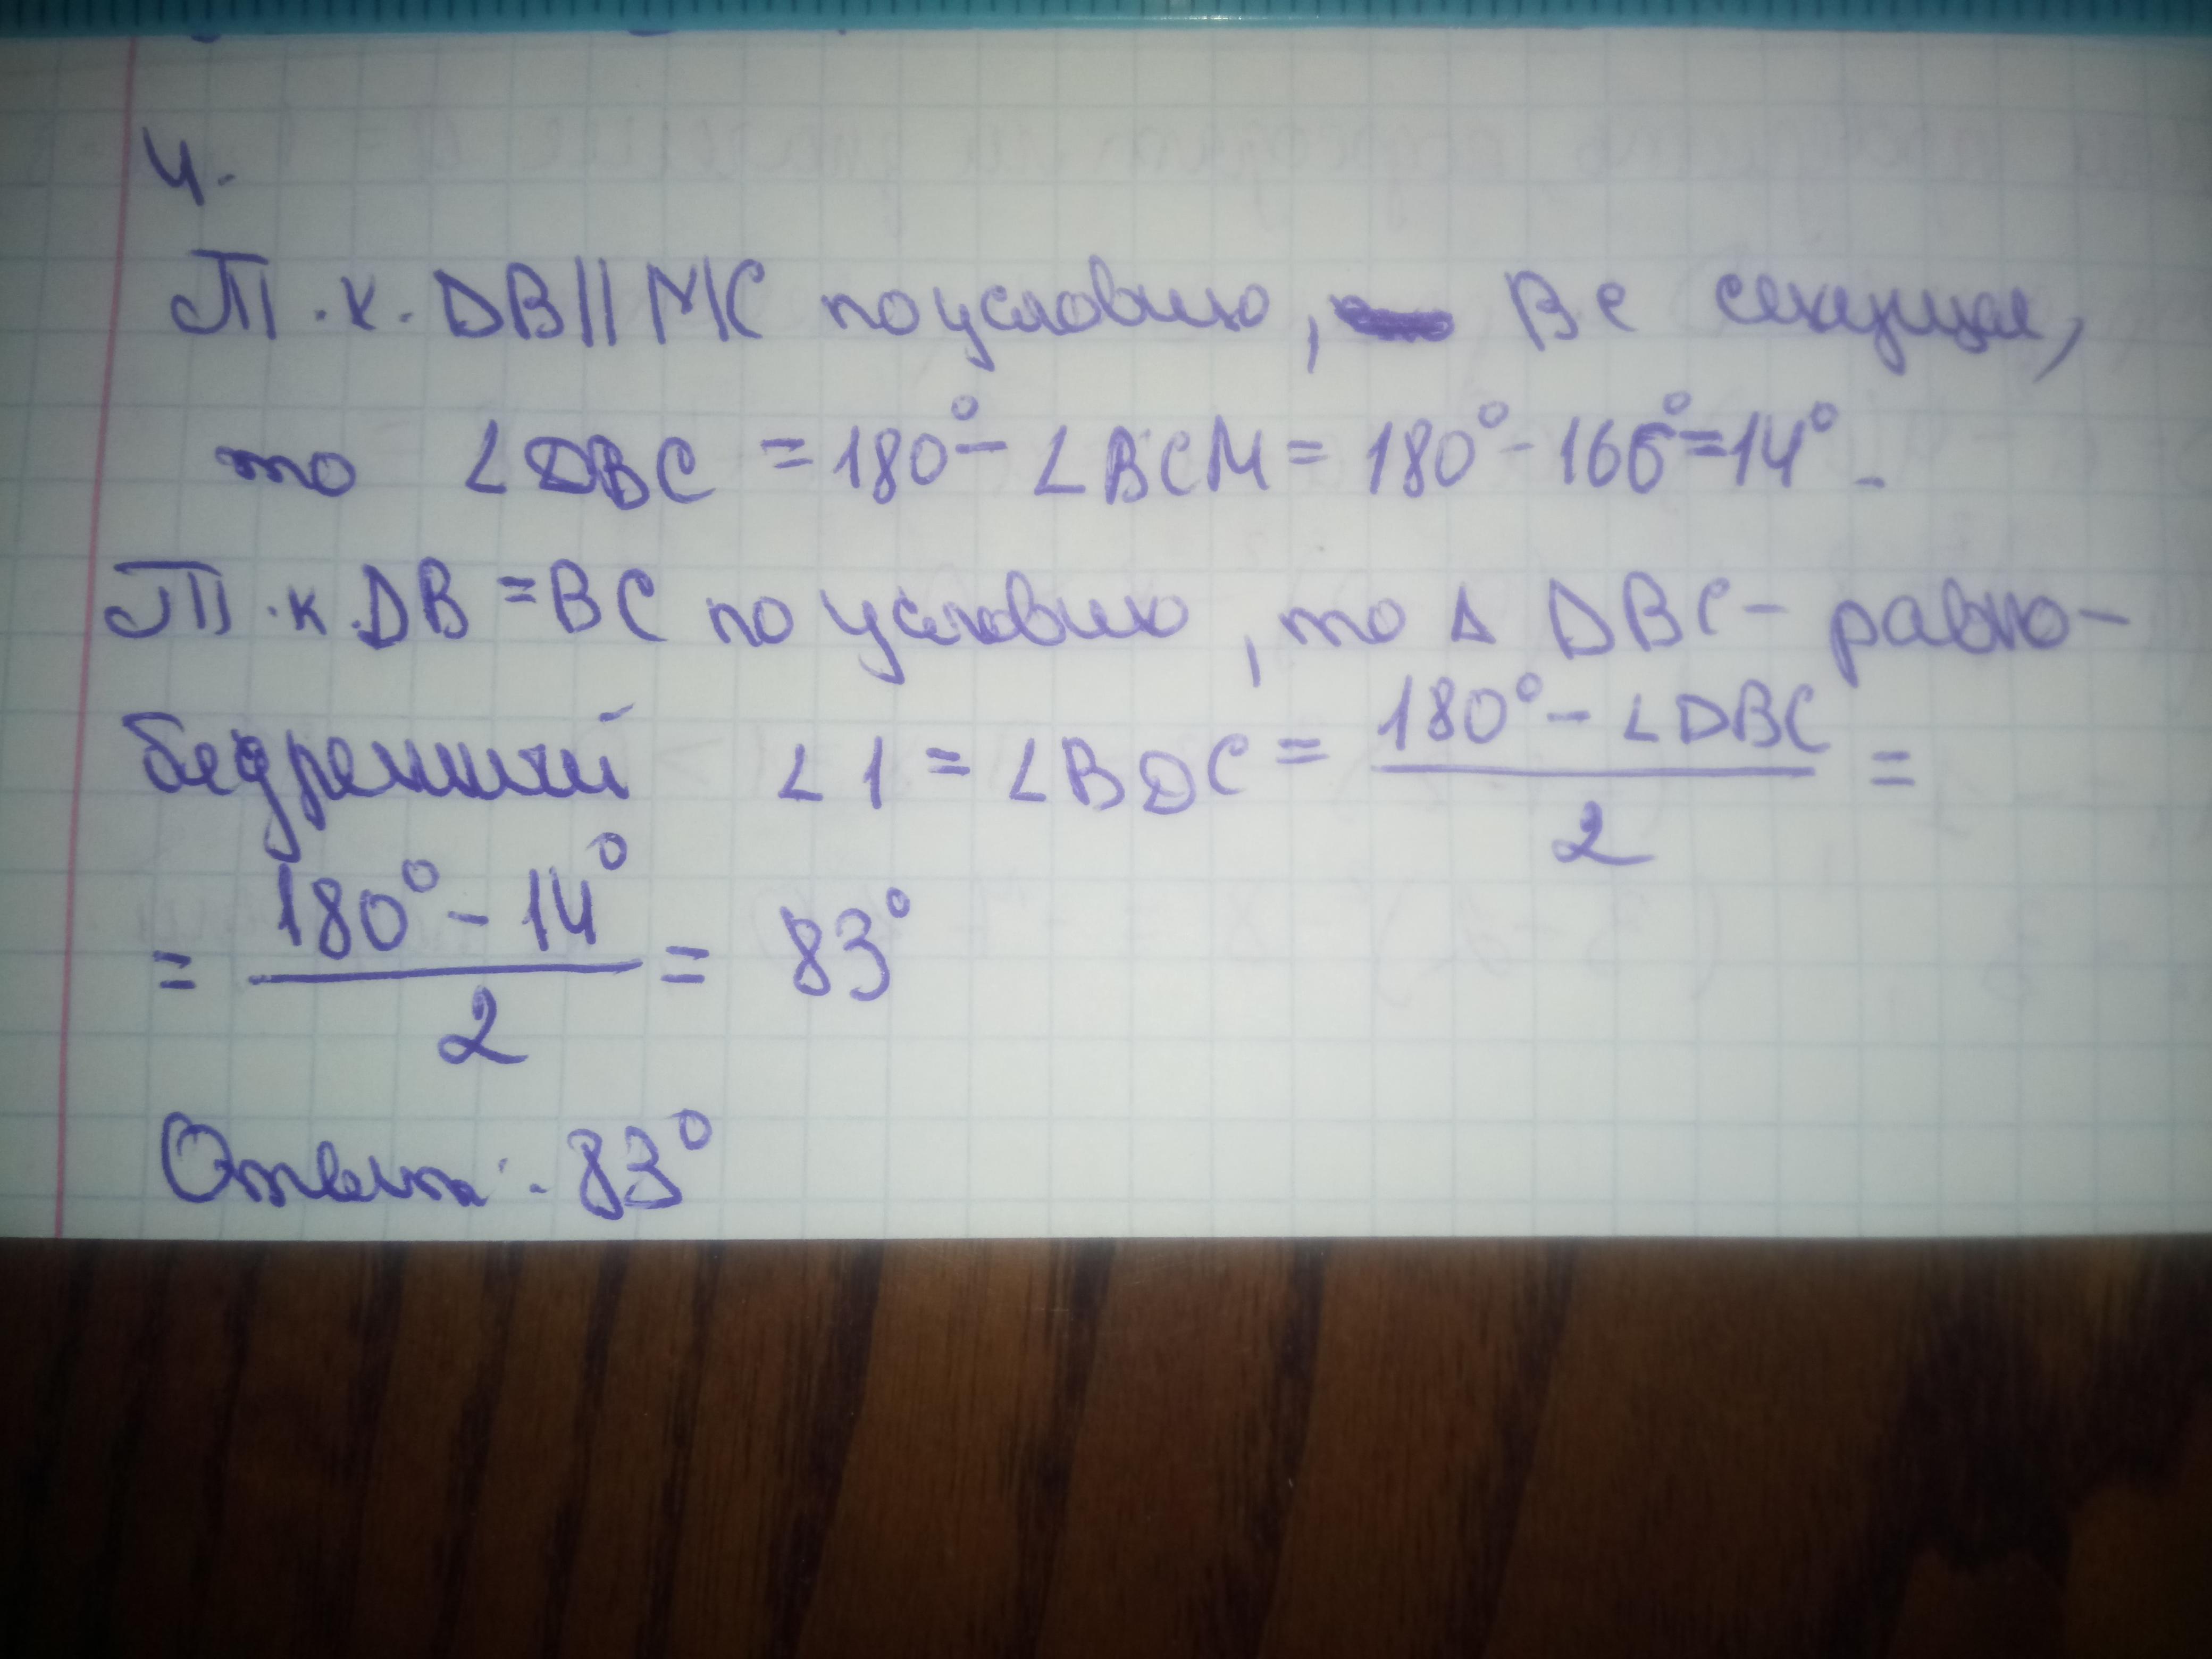 4.
Т.к. DB||MC по условию, BC секущая,
то ∠DBC = 180° - ∠BCM = 180° - 166° = 14°.
Т.к. DB = BC по условию, то Δ DBC - равно-
бедренный ∠1 = ∠BDC = (180° - ∠DBC)/2 =
= (180° - 14°)/2 = 83°
Ответ: 83°